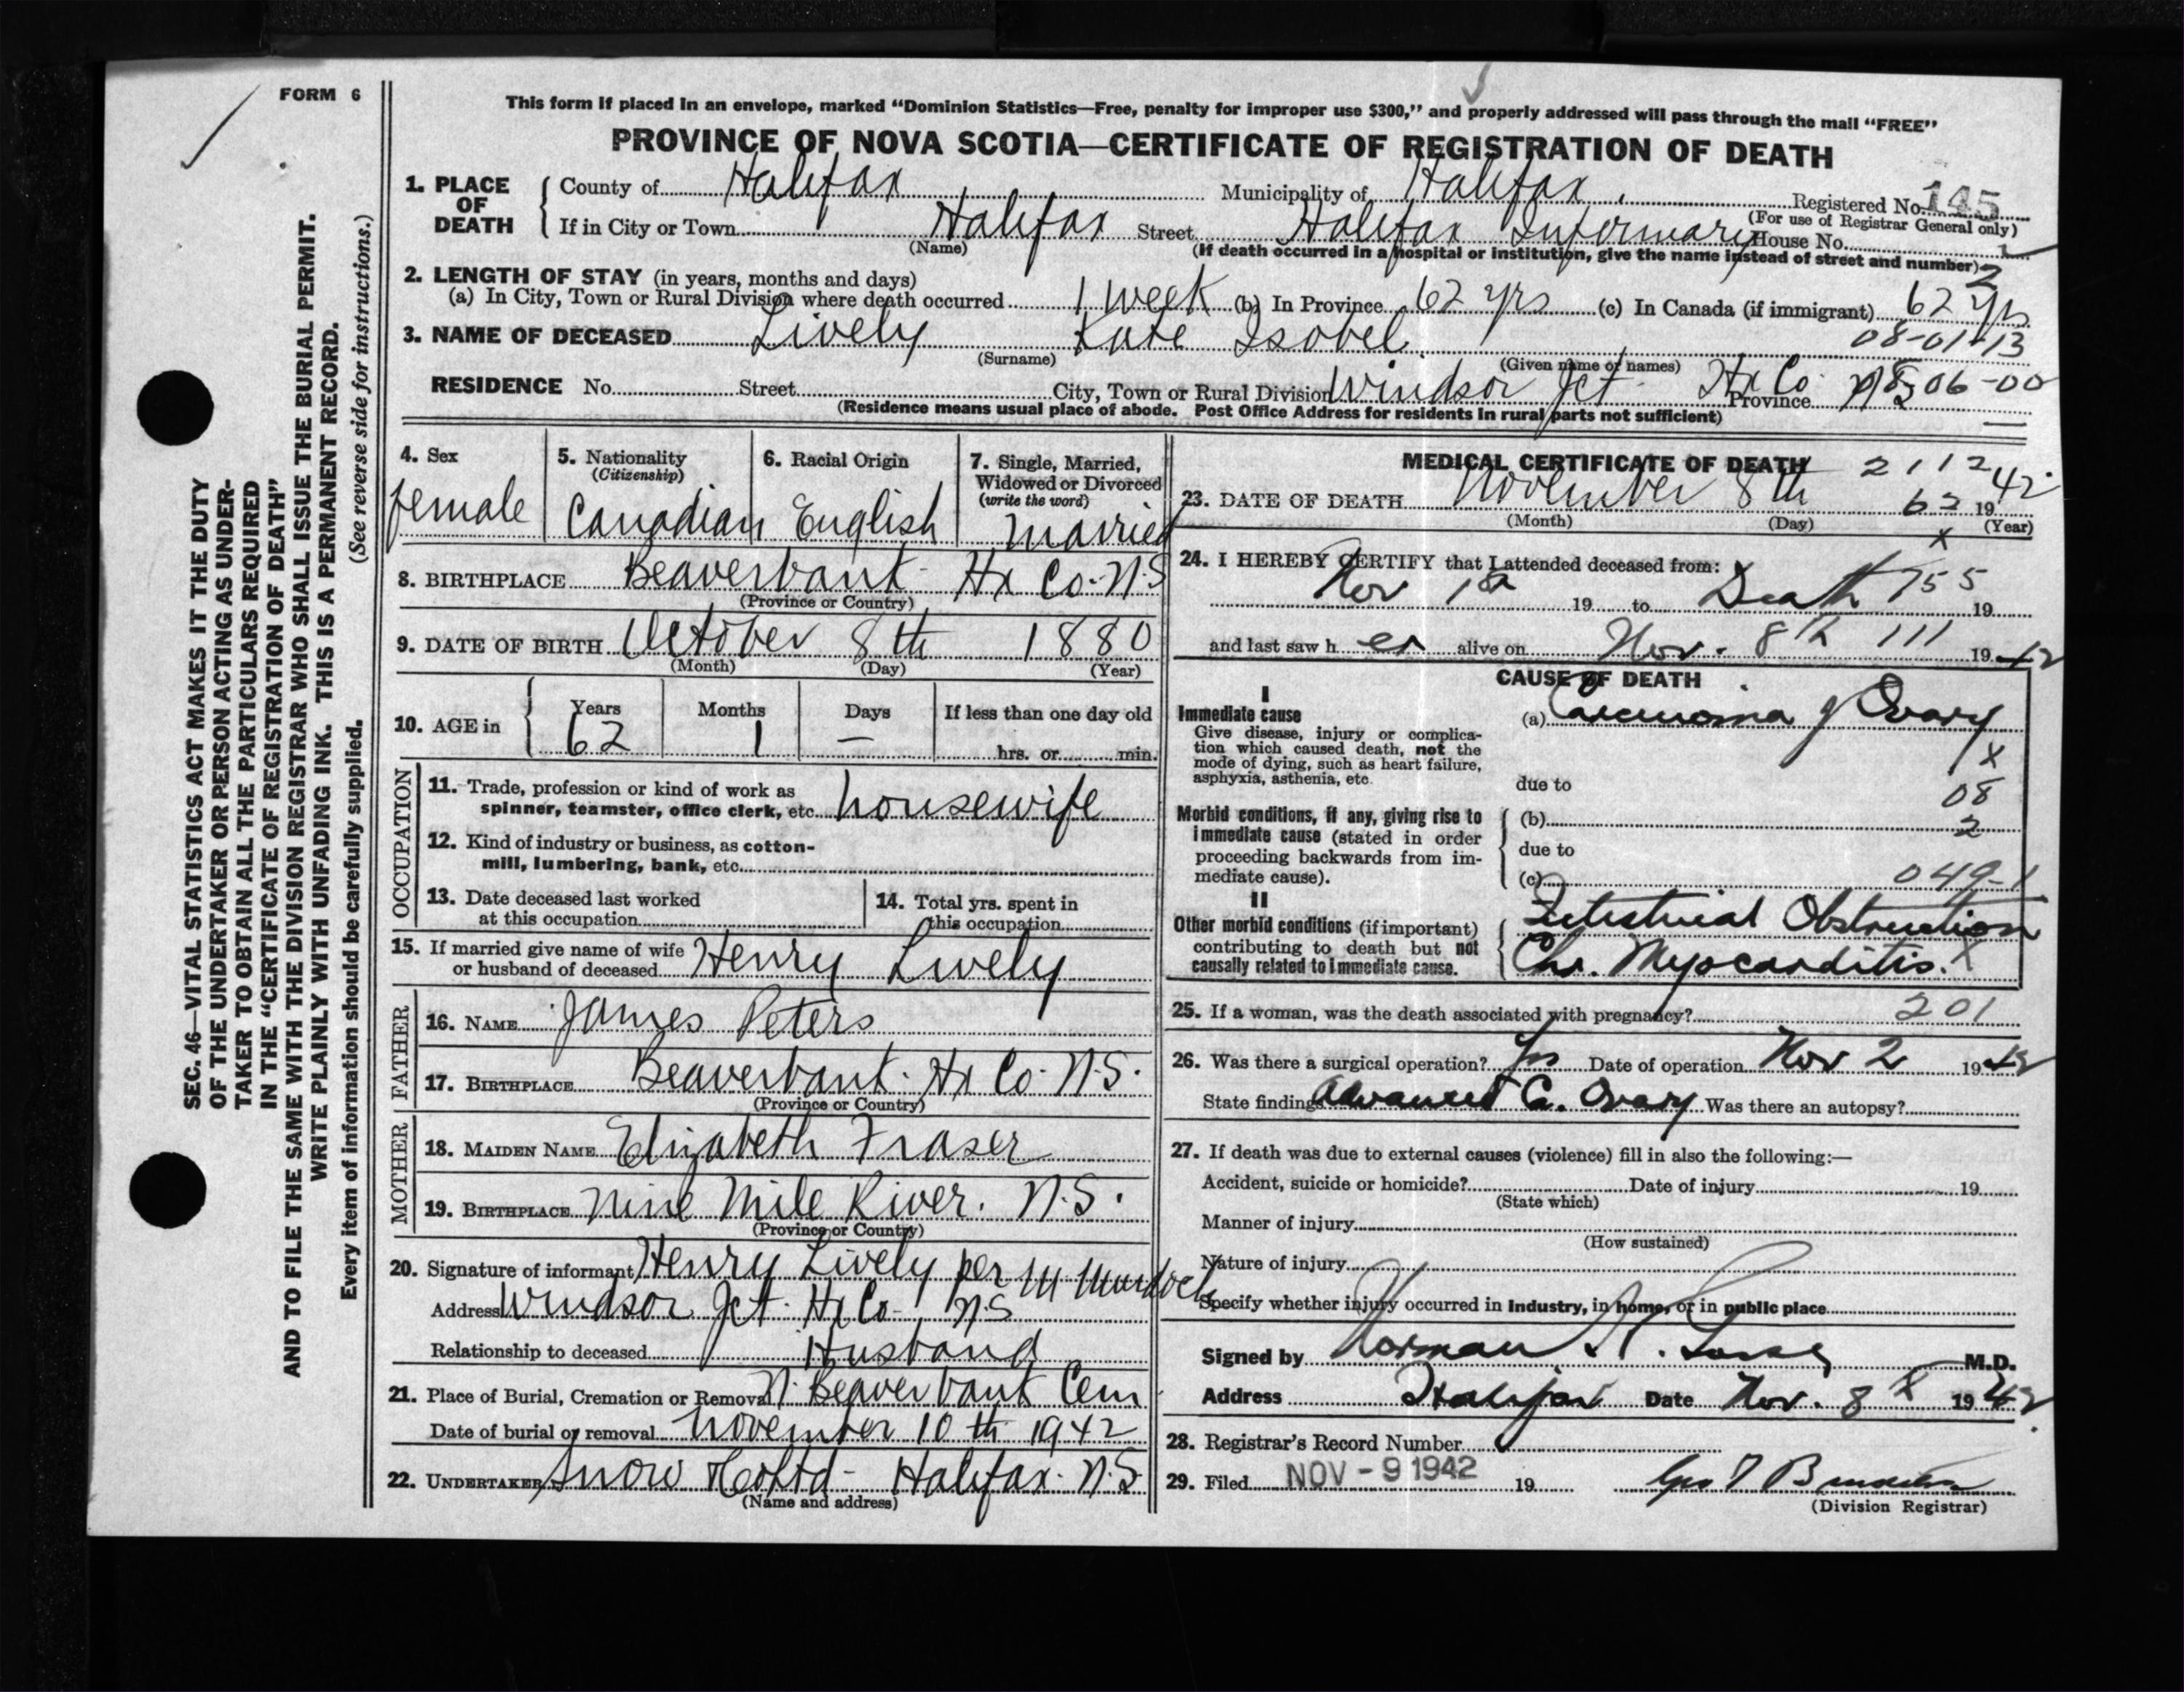 FORM 6
This form if placed in an envelope, marked “Dominion Statistics—Free, penalty for improper use $300,” and properly addressed will pass through the mail “FREE”
PROVINCE OF NOVA SCOTIA—CERTIFICATE OF REGISTRATION OF DEATH
1. PLACE OF DEATH
County of Halifax Municipality of Halifax Registered No. 145
(For use of Registrar General only)
If in City or Town Halifax Street Halifax Infirmary House No.
(Name) (If death occurred in a hospital or institution, give the name instead of street and number)
2
2. LENGTH OF STAY (in years, months and days)
(a) In City, Town or Rural Division where death occurred 1 week (b) In Province 62 yrs (c) In Canada (if immigrant) 62 yrs
3. NAME OF DECEASED Lively Kate Isobel 08-01-13
(Surname) (Given name or names)
RESIDENCE No. Street City, Town or Rural Division Windsor Jct. Hx Co. Province N.S. 06-00
(Residence means usual place of abode. Post Office Address for residents in rural parts not sufficient)
4. Sex
female
5. Nationality
(Citizenship)
Canadian
6. Racial Origin
English
7. Single, Married,
Widowed or Divorced
(write the word)
married
8. BIRTHPLACE Beaverbank Hx Co. N.S
(Province or Country)
9. DATE OF BIRTH October 8th 1880
(Month) (Day) (Year)
10. AGE in Years Months Days If less than one day old
62 1 — hrs. or min.
OCCUPATION
11. Trade, profession or kind of work as
spinner, teamster, office clerk, etc. housewife
12. Kind of industry or business, as cotton-
mill, lumbering, bank, etc.
13. Date deceased last worked
at this occupation
14. Total yrs. spent in
this occupation
15. If married give name of wife
or husband of deceased Henry Lively
FATHER
16. NAME James Peters
17. BIRTHPLACE Beaverbank. Hx Co. N.S.
(Province or Country)
MOTHER
18. MAIDEN NAME Elizabeth Fraser
19. BIRTHPLACE Nine Mile River. N.S.
(Province or Country)
20. Signature of informant Henry Lively per M Murdoch
Address Windsor Jct. Hx Co. N.S
Relationship to deceased Husband
21. Place of Burial, Cremation or Removal N. Beaverbank Cem
Date of burial or removal November 10th 1942
22. UNDERTAKER Snow & Co Ltd - Halifax. N.S.
(Name and address)
MEDICAL CERTIFICATE OF DEATH 2112
23. DATE OF DEATH November 8th 62 1942
(Month) (Day) (Year)
x
24. I HEREBY CERTIFY that I attended deceased from:
Nov 1st 19 to Death 755 19
and last saw her alive on Nov. 8th 111 1942
CAUSE OF DEATH
I
Immediate cause
Give disease, injury or complica-
tion which caused death, not the
mode of dying, such as heart failure,
asphyxia, asthenia, etc.
(a) Carcinoma of Ovary
X
due to 08
Morbid conditions, if any, giving rise to
immediate cause (stated in order
proceeding backwards from im-
mediate cause).
(b) 2
due to
(c) 049-1
II
Other morbid conditions (if important)
contributing to death but not
causally related to immediate cause.
Intestinal Obstruction
Chr. Myocarditis. X
25. If a woman, was the death associated with pregnancy? 201
26. Was there a surgical operation? Yes Date of operation Nov 2 1942
State findings Advanced Ca. Ovary Was there an autopsy?
27. If death was due to external causes (violence) fill in also the following:—
Accident, suicide or homicide? Date of injury 19
(State which)
Manner of injury
(How sustained)
Nature of injury
Specify whether injury occurred in Industry, in home, or in public place
Signed by Norman M.D.
Address Halifax Date Nov. 8 1942
28. Registrar's Record Number
29. Filed NOV - 9 1942 19
(Division Registrar)
SEC. 46—VITAL STATISTICS ACT MAKES IT THE DUTY
OF THE UNDERTAKER OR PERSON ACTING AS UNDER-
TAKER TO OBTAIN ALL THE PARTICULARS REQUIRED
IN THE “CERTIFICATE OF REGISTRATION OF DEATH”
AND TO FILE THE SAME WITH THE DIVISION REGISTRAR WHO SHALL ISSUE THE BURIAL PERMIT.
WRITE PLAINLY WITH UNFADING INK. THIS IS A PERMANENT RECORD.
Every item of information should be carefully supplied. (See reverse side for instructions.)